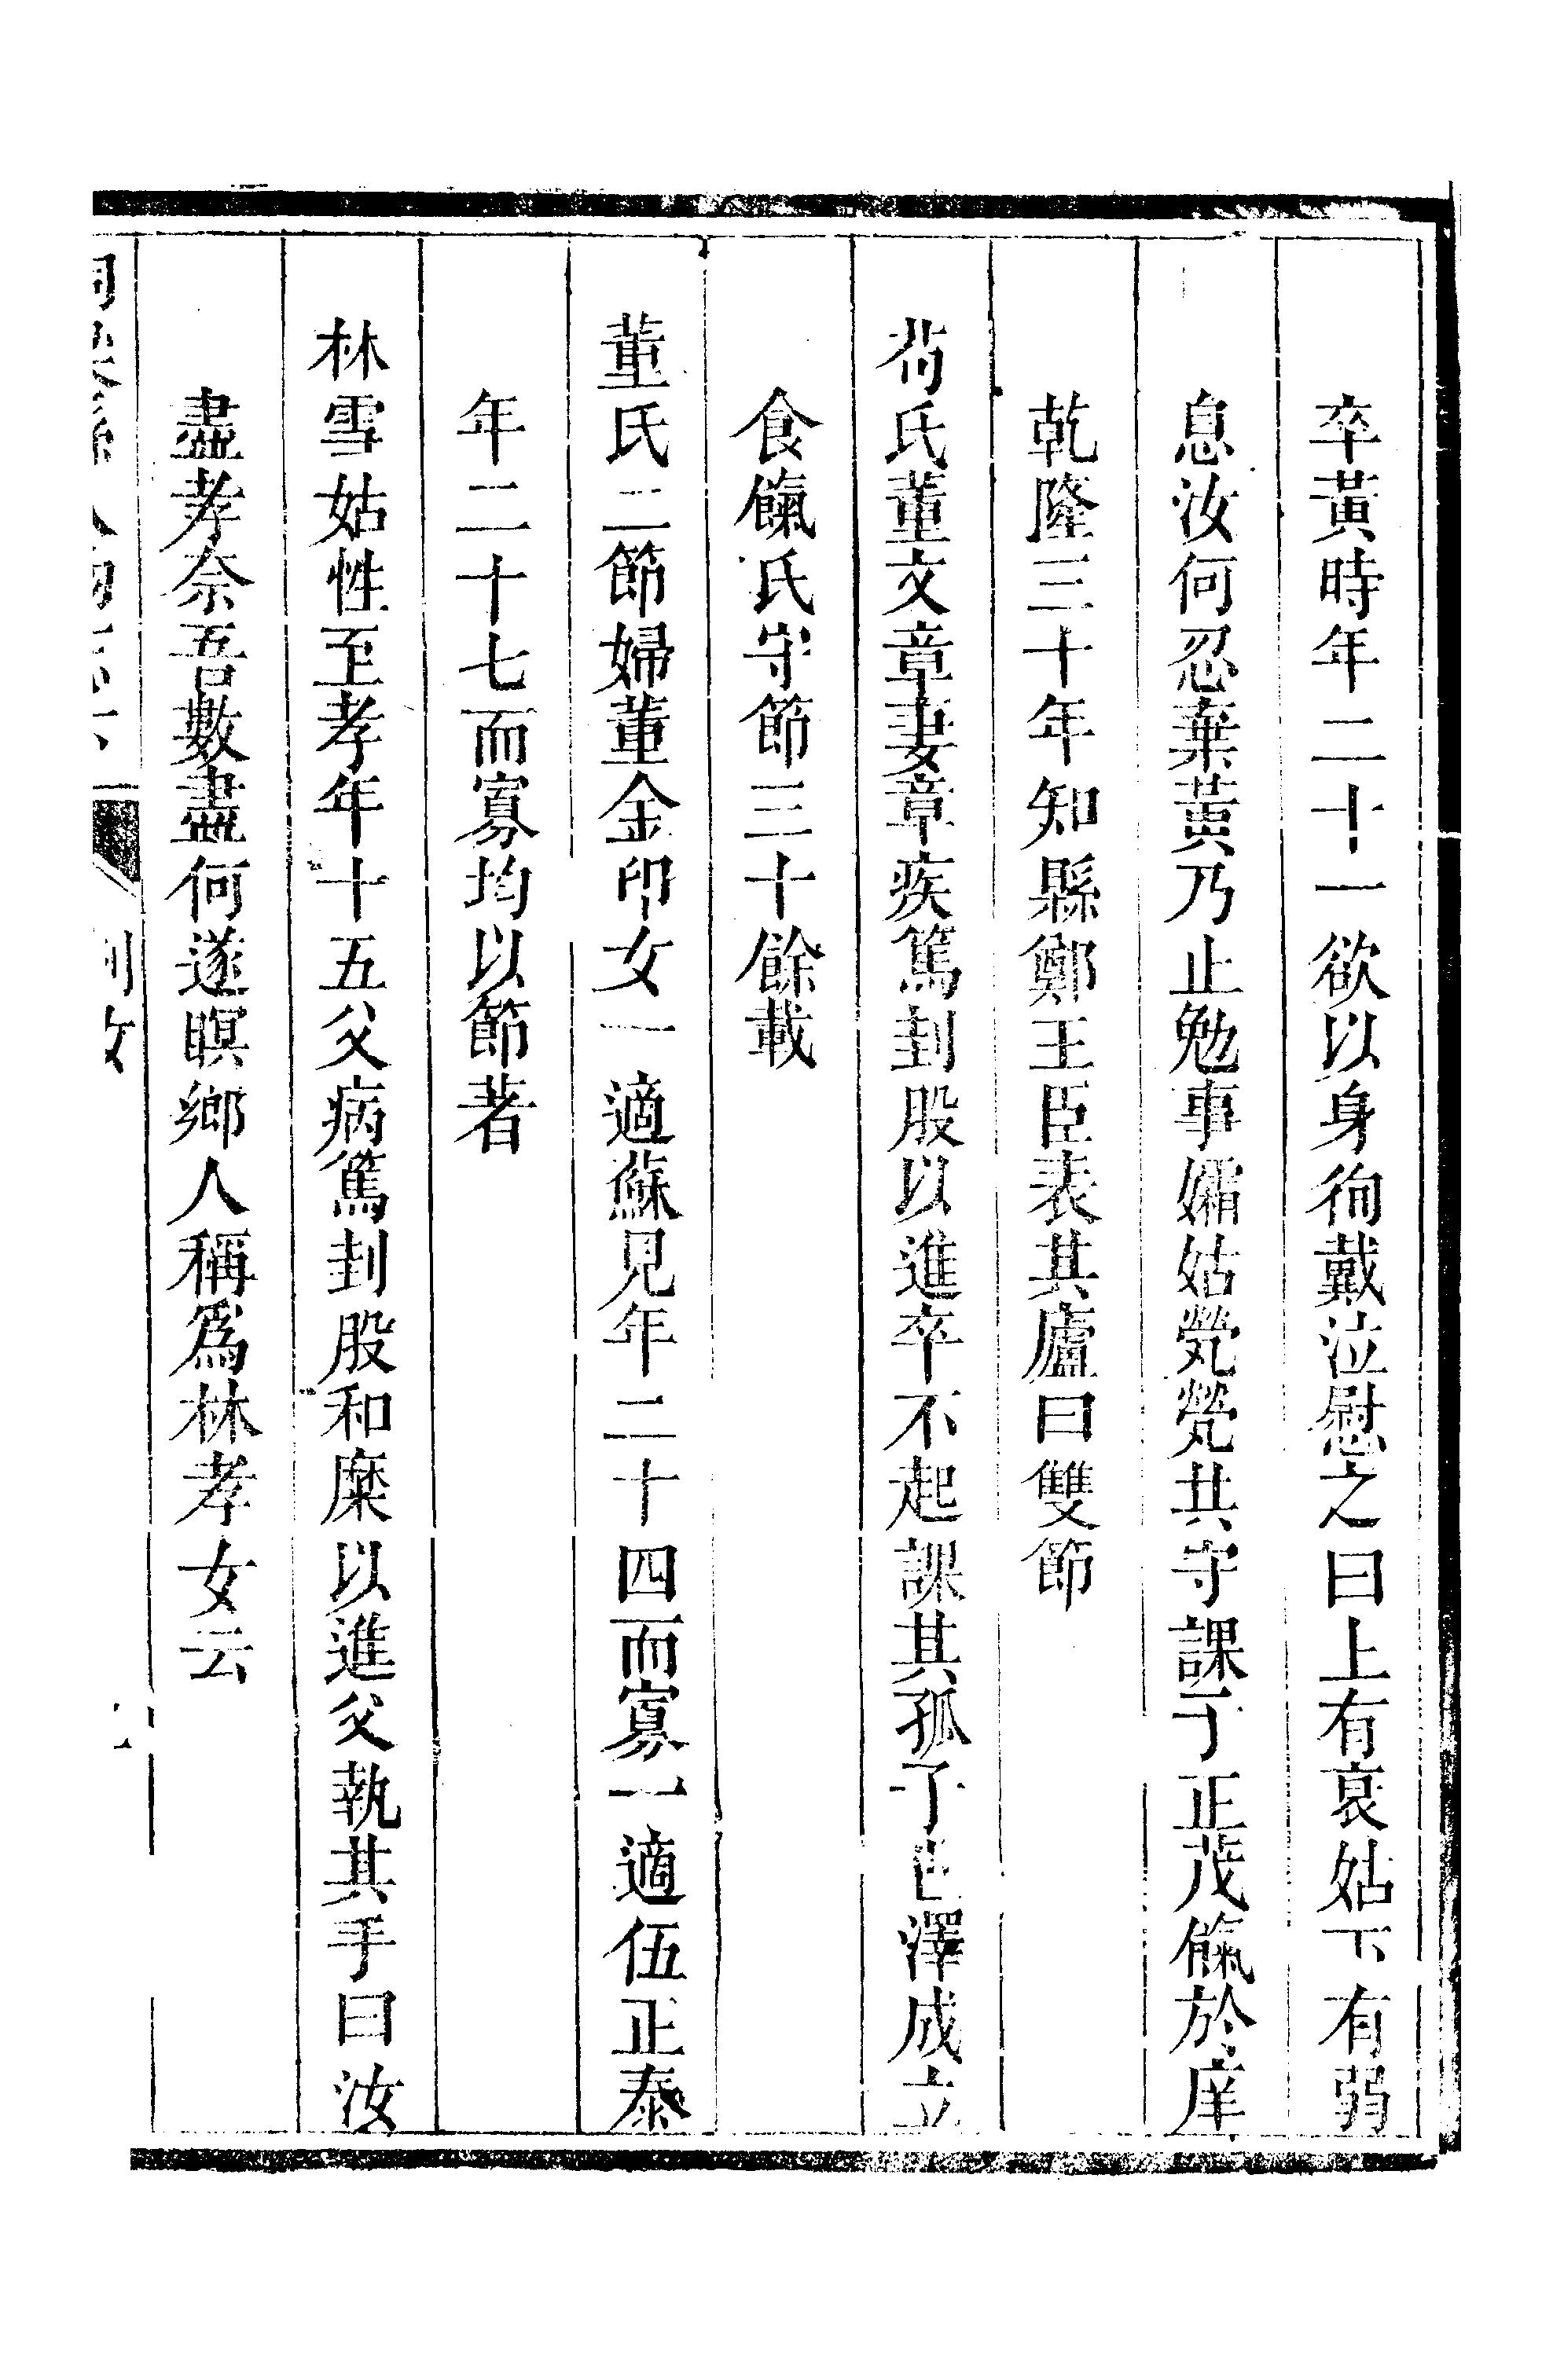 卒黃時年二十一欲以身徇戴泣慰之曰上有哀姑下有弱
息汝何忍棄黃乃止勉事孀姑煢煢共守課子正茂餼於庠
乾隆三十年知縣鄭王臣表其廬曰雙節
苟氏董文章妻章疾篤刲股以進卒不起課其孤子色澤成立
食餼氏守節三十餘載
董氏二節婦董金印女一適蘇見年二十四而寡一適伍正泰
年二十七而寡均以節著
林雪姑性至孝年十五父病篤刲股和糜以進父執其手曰汝
盡孝奈吾數盡何遂瞑鄉人稱爲林孝女云